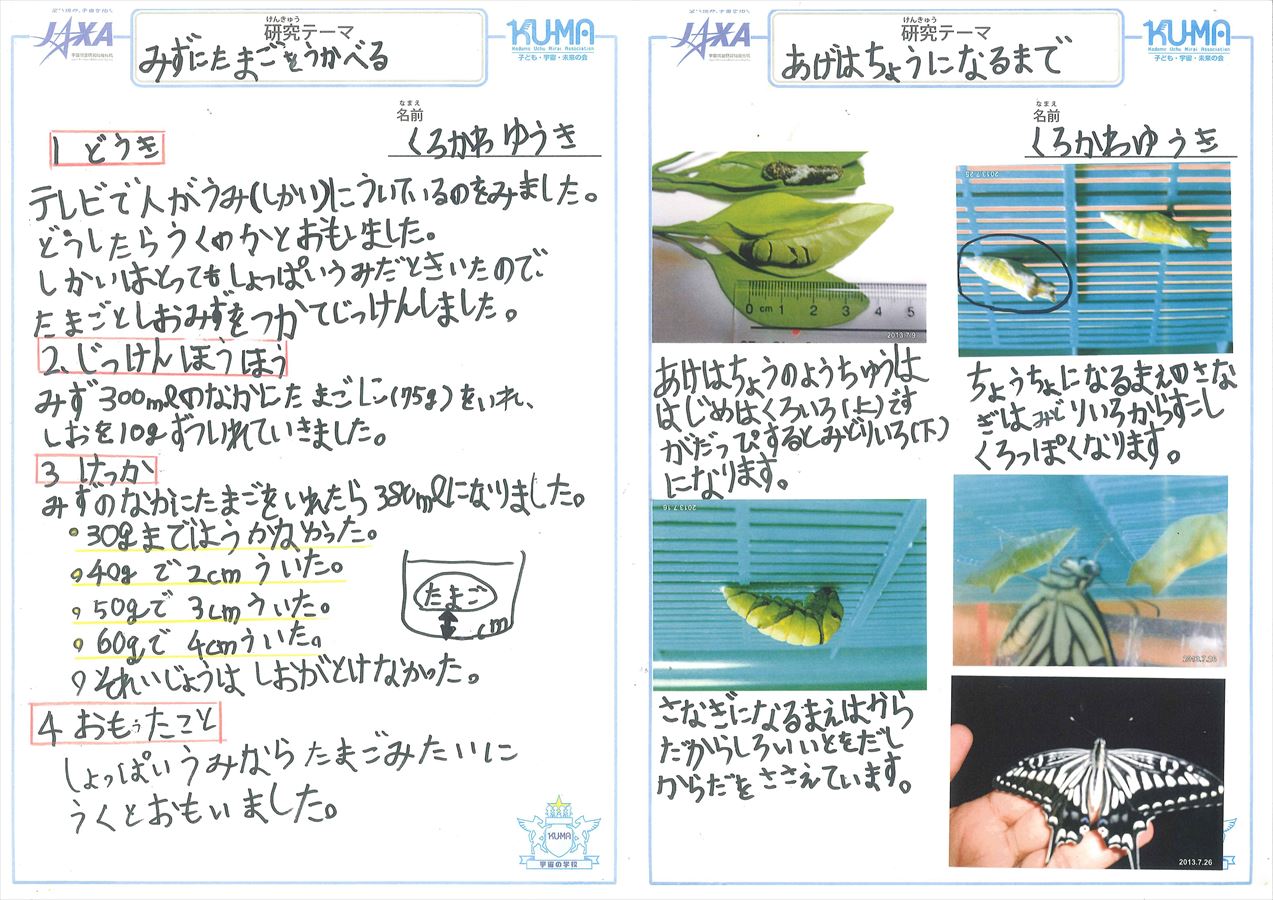 JAXA
けんきゅう
研究テーマ
KU-MA
Kodomo Uchu Mirai Association
子ども・宇宙・未来の会
みずにたまごをうかべる
なまえ
名前
くろかわ ゆうき
1 どうき
テレビで人がうみ(しかい)にういているのをみました。
どうしたらうくのかとおもいました。
しかいはとってもしょっぱいうみだときいたので、
たまごとしおみずをつかてじっけんしました。
2、じっけんほうほう
みず300mlのなかにたまごしこ(75g)をいれ、
しおを10gずついれていきました。
3 けっか
みずのなかにたまごをいれたら380mlになりました。
30gまではうかなかった。
40gで2cmういた。
50gで3cmういた。
60gで4cmういた。
それいじょうはしおがとけなかった。
たまご
cm
4 おもうたこと
しょっぱいうみならたまごみたいに
うくとおもいました。
KUMA
宇宙の学校
JAXA
けんきゅう
研究テーマ
KU-MA
Kodomo Uchu Mirai Association
子ども・宇宙・未来の会
あげはちょうになるまで
なまえ
名前
くろかわゆうき
0 cm 1 2 3 4 5
2013.7.9
あけはちょうのようちゅうは
はじめはくろいろ(上)です
がだっぴするとみどりいろ(下)
になります。
2013.7.16
さなぎになるまえはから
だからしろいいとをだし
からだをささえています。
2013.7.25
ちょうちょになるまえのさな
ぎはみどりいろからすこし
くろっぽくなります。
2013.7.26
2013.7.26